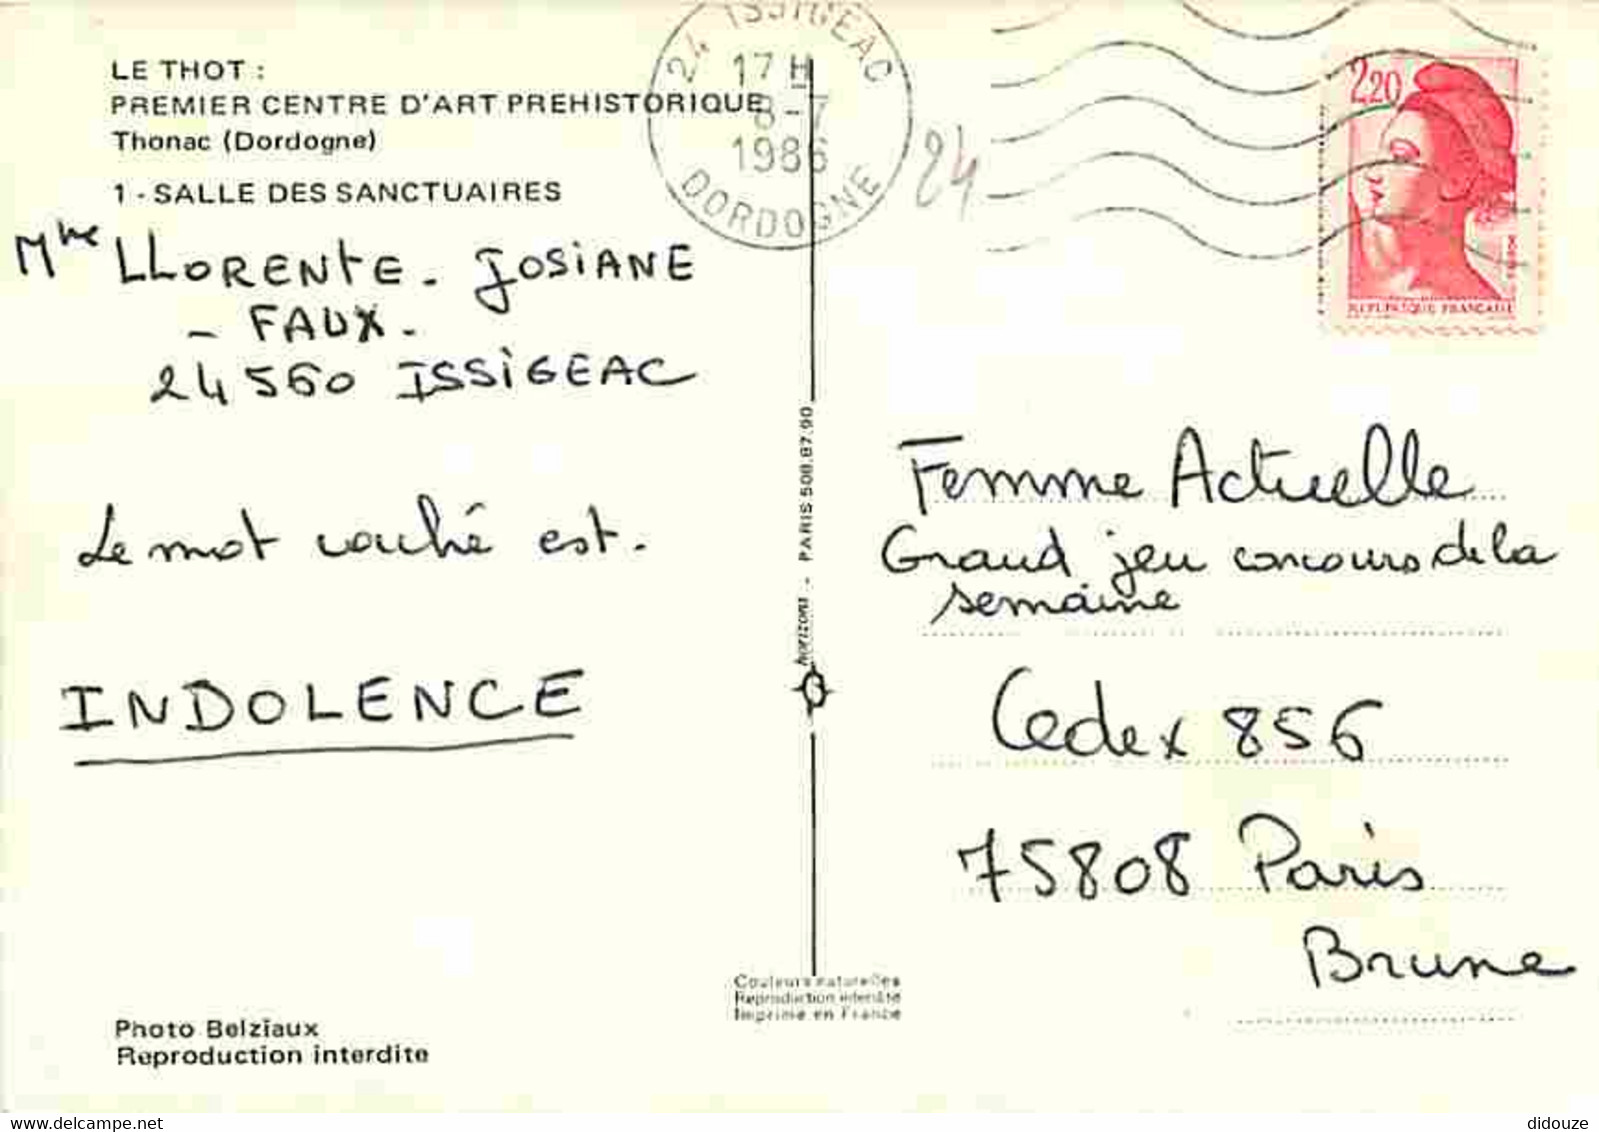 LE THOT :
PREMIER CENTRE D'ART PREHISTORIQUE
Thonac (Dordogne)
1 - SALLE DES SANCTUAIRES
Mme LLORENTE - JOSIANE
- FAUX -
24560 ISSIGEAC
Le mot caché est.
INDOLENCE
Photo Belziaux
Reproduction interdite
24 ISSIGEAC
17 H
8-7
1986
DORDOGNE
24
2,20
REPUBLIQUE FRANÇAISE
horizons - PARIS 508.87.90
Couleurs naturelles
Reproduction interdite
Imprimé en France
Femme Actuelle
Grand jeu concours de la
semaine
Cedex 856
75808 Paris
Brune
www.delcampe.net
didouze